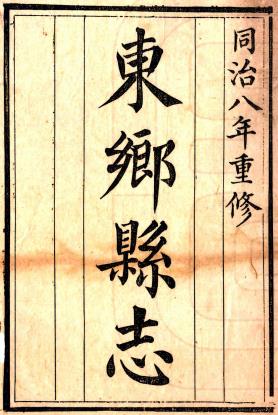 同治八年重修
東鄉縣志